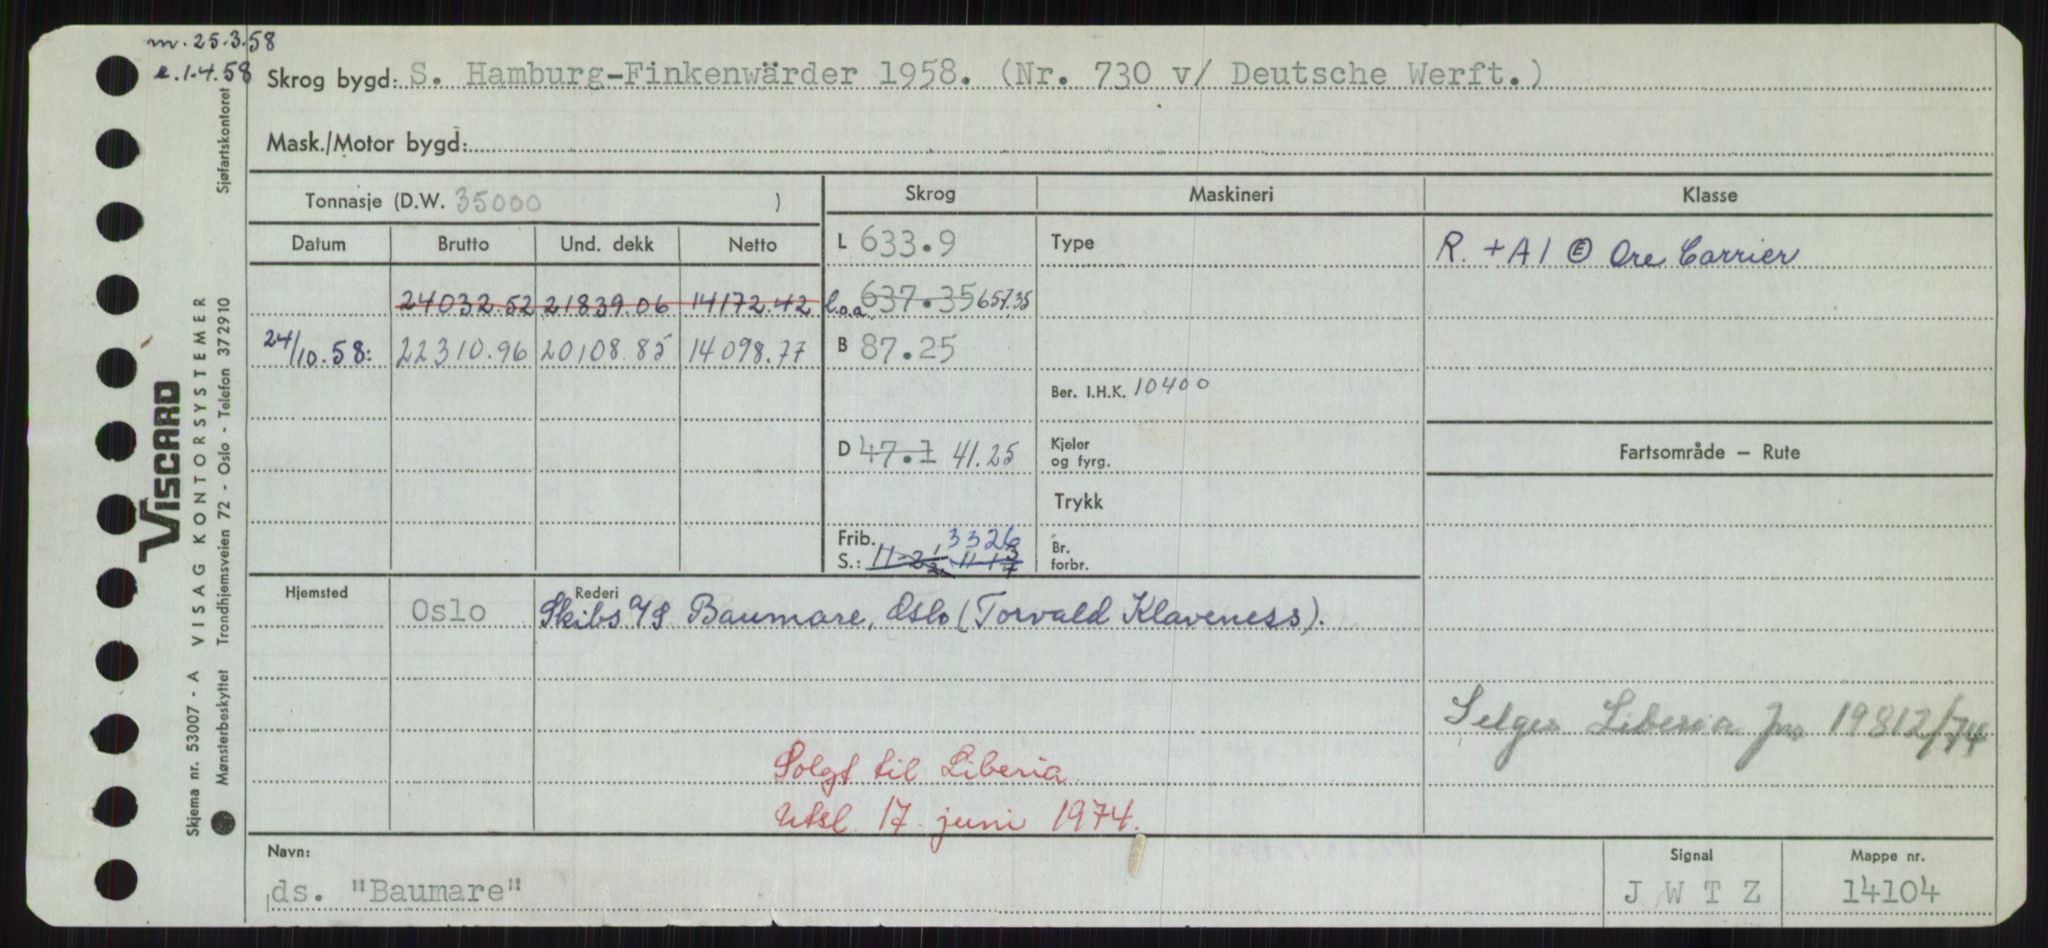 m. 25.3.58
e. 1.4.58
Skrog bygd: S. Hamburg-Finkenwärder 1958. (Nr. 730 v/ Deutsche Werft.)
Mask./Motor bygd:
Tonnasje (D.W. 35000 )
Skrog Maskineri Klasse
Datum Brutto Und. dekk Netto
L 633.9 Type R. +A1 Ⓔ Ore Carrier
24032.52 21839.06 14172.42 l.o.a. 637.35 657.35
24/10.58: 22310.96 20108.85 14098.77 B 87.25
Ber. I.H.K. 10400
D 47.1 41.25 Kjeler
og fyrg.
Fartsområde — Rute
Trykk
Frib. 3326 Br.
S.: forbr.
Hjemsted Rederi
Oslo Skibs A/S Baumare, Oslo (Torvald Klaveness).
Selges Liberia 1981 2/74
Solgt til Liberia.
Utsl. 17. juni 1974.
Navn: Signal Mappe nr.
ds. "Baumare" J W T Z 14104
VISCARD
Skjema nr. 53007 - A VISAG KONTORSYSTEMER
Mønsterbeskyttet Trondhjemsveien 72 - Oslo - Telefon 372910 Sjøfartskontoret